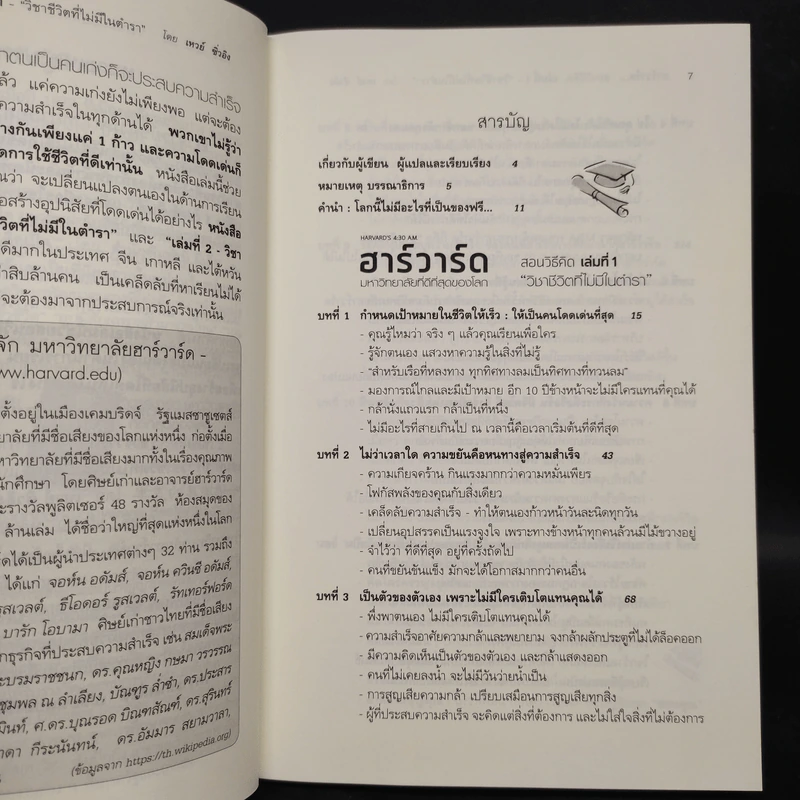 - "วิชาชีวิตที่ไม่มีในตำรา"
โดย เหวย์ ซิ่วอิง
าตนเป็นคนเก่งก็จะประสบความสำเร็จ
ล้ว แค่ความเก่งยังไม่เพียงพอ แต่จะต้อง
ความสำเร็จในทุกด้านได้ พวกเขาไม่รู้ว่า
างกันเพียงแค่ 1 ก้าว และความโดดเด่นก็
ดการใช้ชีวิตที่ดีเท่านั้น หนังสือเล่มนี้ช่วย
นว่า จะเปลี่ยนแปลงตนเองในด้านการเรียน
อสร้างอุปนิสัยที่โดดเด่นได้อย่างไร หนังสือ
วิตที่ไม่มีในตำรา" และ "เล่มที่ 2 - วิชา
ดีมากในประเทศ จีน เกาหลี และไต้หวัน
าสิบล้านคน เป็นเคล็ดลับที่หาเรียนไม่ได้
จะต้องมาจากประสบการณ์จริงเท่านั้น
จัก มหาวิทยาลัยฮาร์วาร์ด -
ww.harvard.edu)
ตั้งอยู่ในเมืองเคมบริดจ์ รัฐแมสซาชูเซตส์
ยาลัยที่มีชื่อเสียงของโลกแห่งหนึ่ง ก่อตั้งเมื่อ
หาวิทยาลัยที่มีชื่อเสียงมากทั้งในเรื่องคุณภาพ
นักศึกษา โดยศิษย์เก่าและอาจารย์ฮาร์วาร์ด
ะรางวัลพูลิตเซอร์ 48 รางวัล ห้องสมุดของ
ล้านเล่ม ได้ชื่อว่าใหญ่ที่สุดแห่งหนึ่งในโลก
ร์ดได้เป็นผู้นำประเทศต่างๆ 32 ท่าน รวมถึง
ได้แก่ จอห์น อดัมส์, จอห์น ควินซี อดัมส์,
รูสเวลต์, ธีโอดอร์ รูสเวลต์, รัทเทอร์ฟอร์ด
บารัก โอบามา ศิษย์เก่าชาวไทยที่มีชื่อเสียง
กธุรกิจที่ประสบความสำเร็จ เช่น สมเด็จพระ
ะบรมราชชนก, ดร.คุณหญิง กษมา วรวรรณ
ชุมพล ณ ลำเลียง, บัณฑูร ล่ำซำ, ดร.ประสาร
มินท์, ศ.ดร.บุณรอด บิณฑสัณฑ์, ดร.สุรินทร์
าดา กีระนันทน์, ดร.อัมมาร สยามวาลา,
(ข้อมูลจาก https://th.wikipedia.org)
7
สารบัญ
เกี่ยวกับผู้เขียน ผู้แปลและเรียบเรียง 4
หมายเหตุ บรรณาธิการ 5
คำนำ : โลกนี้ไม่มีอะไรที่เป็นของฟรี... 11
HARVARD'S 4:30 A.M.
ฮาร์วาร์ด สอนวิธีคิด เล่มที่ 1
มหาวิทยาลัยที่ดีที่สุดของโลก "วิชาชีวิตที่ไม่มีในตำรา"
บทที่ 1 กำหนดเป้าหมายในชีวิตให้เร็ว : ให้เป็นคนโดดเด่นที่สุด 15
- คุณรู้ไหมว่า จริง ๆ แล้วคุณเรียนเพื่อใคร
- รู้จักตนเอง แสวงหาความรู้ในสิ่งที่ไม่รู้
- "สำหรับเรือที่หลงทาง ทุกทิศทางลมเป็นทิศทางที่ทวนลม"
- มองการณ์ไกลและมีเป้าหมาย อีก 10 ปีข้างหน้าจะไม่มีใครแทนที่คุณได้
- กล้านั่งแถวแรก กล้าเป็นที่หนึ่ง
- ไม่มีอะไรที่สายเกินไป ณ เวลานี้คือเวลาเริ่มต้นที่ดีที่สุด
บทที่ 2 ไม่ว่าเวลาใด ความขยันคือหนทางสู่ความสำเร็จ 43
- ความเกียจคร้าน กินแรงมากกว่าความหมั่นเพียร
- โฟกัสพลังของคุณกับสิ่งเดียว
- เคล็ดลับความสำเร็จ - ทำให้ตนเองก้าวหน้าวันละนิดทุกวัน
- เปลี่ยนอุปสรรคเป็นแรงจูงใจ เพราะทางข้างหน้าทุกคนล้วนมีไม้ขวางอยู่
- จำไว้ว่า ที่ดีที่สุด อยู่ที่ครั้งถัดไป
- คนที่ขยันขันแข็ง มักจะได้โอกาสมากกว่าคนอื่น
บทที่ 3 เป็นตัวของตัวเอง เพราะไม่มีใครเติบโตแทนคุณได้ 68
- พึ่งพาตนเอง ไม่มีใครเติบโตแทนคุณได้
- ความสำเร็จอาศัยความกล้าและพยายาม จงกล้าผลักประตูที่ไม่ได้ล็อคออก
- มีความคิดเห็นเป็นตัวของตัวเอง และกล้าแสดงออก
- คนที่ไม่เคยลงน้ำ จะไม่มีวันว่ายน้ำเป็น
- การสูญเสียความกล้า เปรียบเสมือนการสูญเสียทุกสิ่ง
- ผู้ที่ประสบความสำเร็จ จะคิดแต่สิ่งที่ต้องการ และไม่ใส่ใจสิ่งที่ไม่ต้องการ